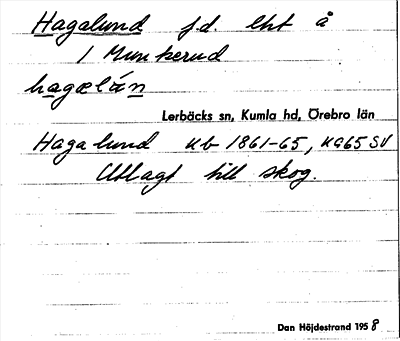 Hagalund f.d. lht å
1 Munkerud
hagælún
Lerbäcks sn, Kumla hd, Örebro län
Hagalund kb 1861-65, KG65 SV
Utlagt till skog.
Dan Höjdestrand 1958